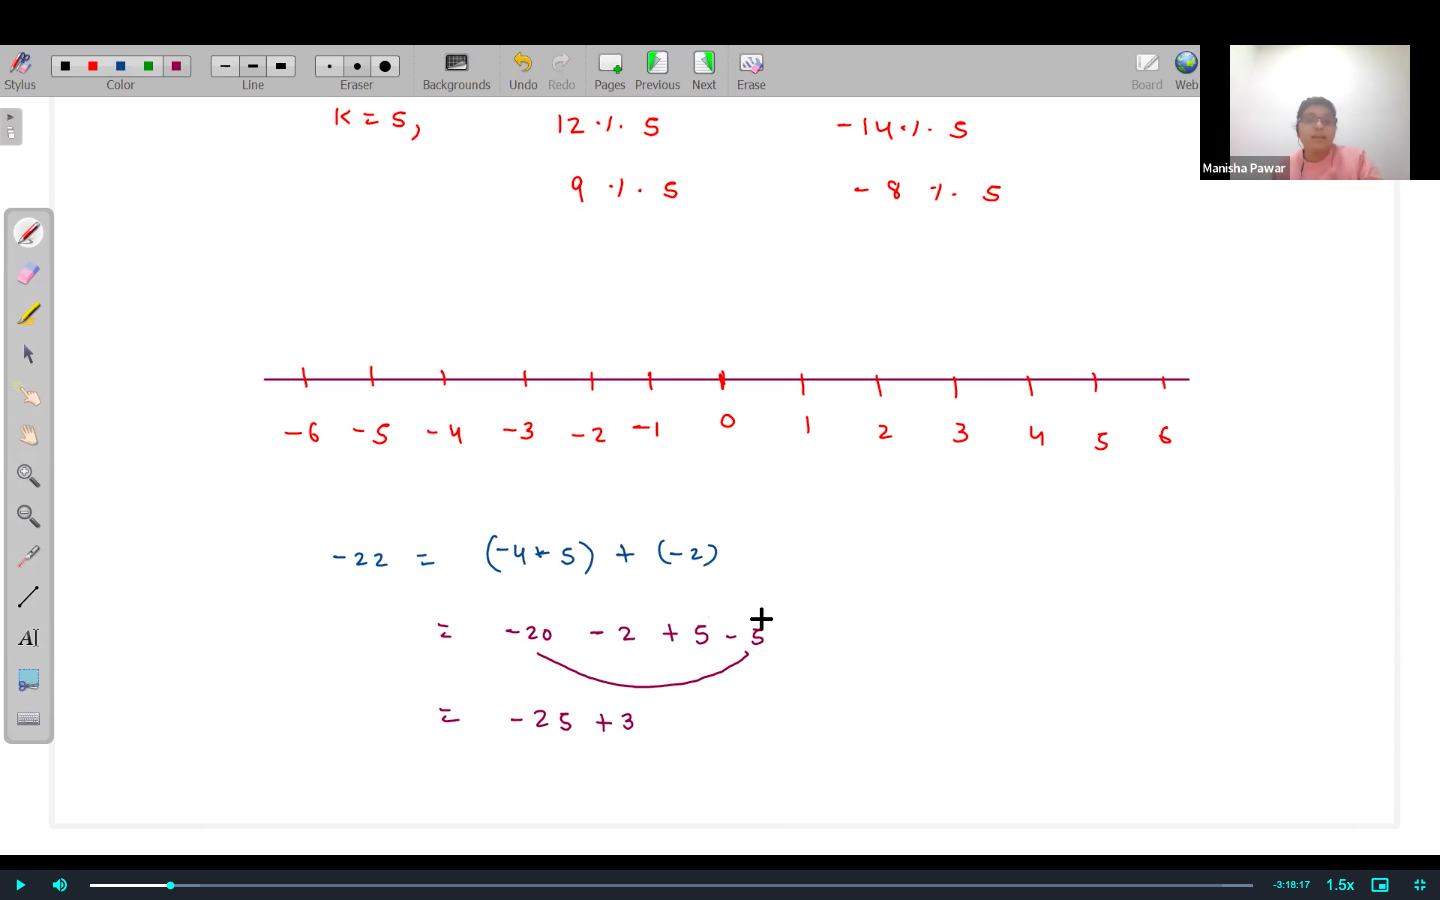 Stylus Color Line Eraser Backgrounds Undo Redo Pages Previous Next Erase Board Web
Manisha Pawar
K = 5, 12 % 5 -14 % 5
9 % 5 -8 % 5
-6 -5 -4 -3 -2 -1 0 1 2 3 4 5 6
-22 = (-4 * 5) + (-2)
= -20 - 2 + 5 - 5
= -25 + 3
-3:18:17 1.5x